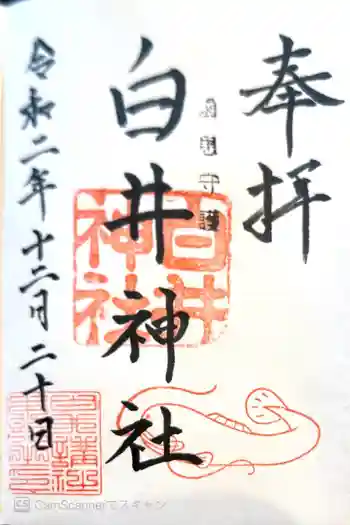 奉拝
守護
白井神社
白井
神社
令和二年十二月二十日
CamScannerでスキャン